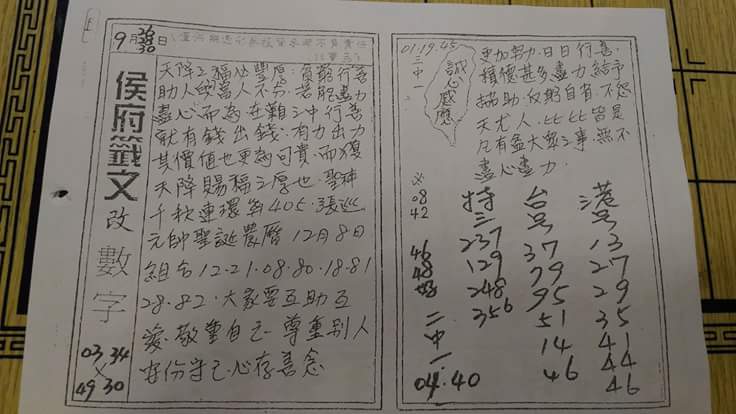 9月 26 30日
侯府籤文
改數字
03 34
×
49 30
天降之福必豐厚·貧窮行善
助人卻萬人不為·若能盡力
盡心而為·在難之中行善
就有錢出錢·有力出力
其價值也更為可貴·而獲
天降賜福之厚也·聖神
千秋連環籤405·張巡
元帥聖誕農曆12月8日
組合12·21·08·80·18·81
28·82·大家要互助互
愛·敬重自己·尊重別人
安份守己·心存善念
01·19·45
三中一
誠心感應
更加努力·日日行善·
積德甚多·盡力給予
協助·反躬自省·不怨
天尤人·比比皆是
凡有益大眾之事·無不
盡心盡力·
※
08
42
46
48
好
二中一
04·40
特三
237
129
248
356
台号
37
79
95
51
14
46
港号
13
27
29
35
41
44
46